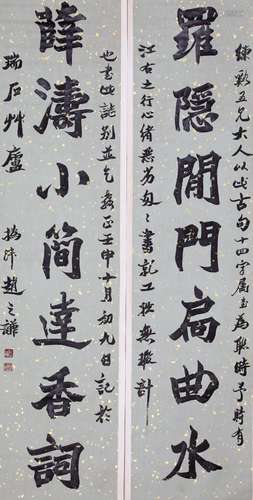 大人以此古句十四字屬書為聯時予時有
羅隱閒門扃曲水
江右之行心緒無匆書就工拙無暇計
也書此誌別並乞教正壬申十月初九日記於
薛濤小簡達香詞
瑞石艸廬 撝叔趙之謙